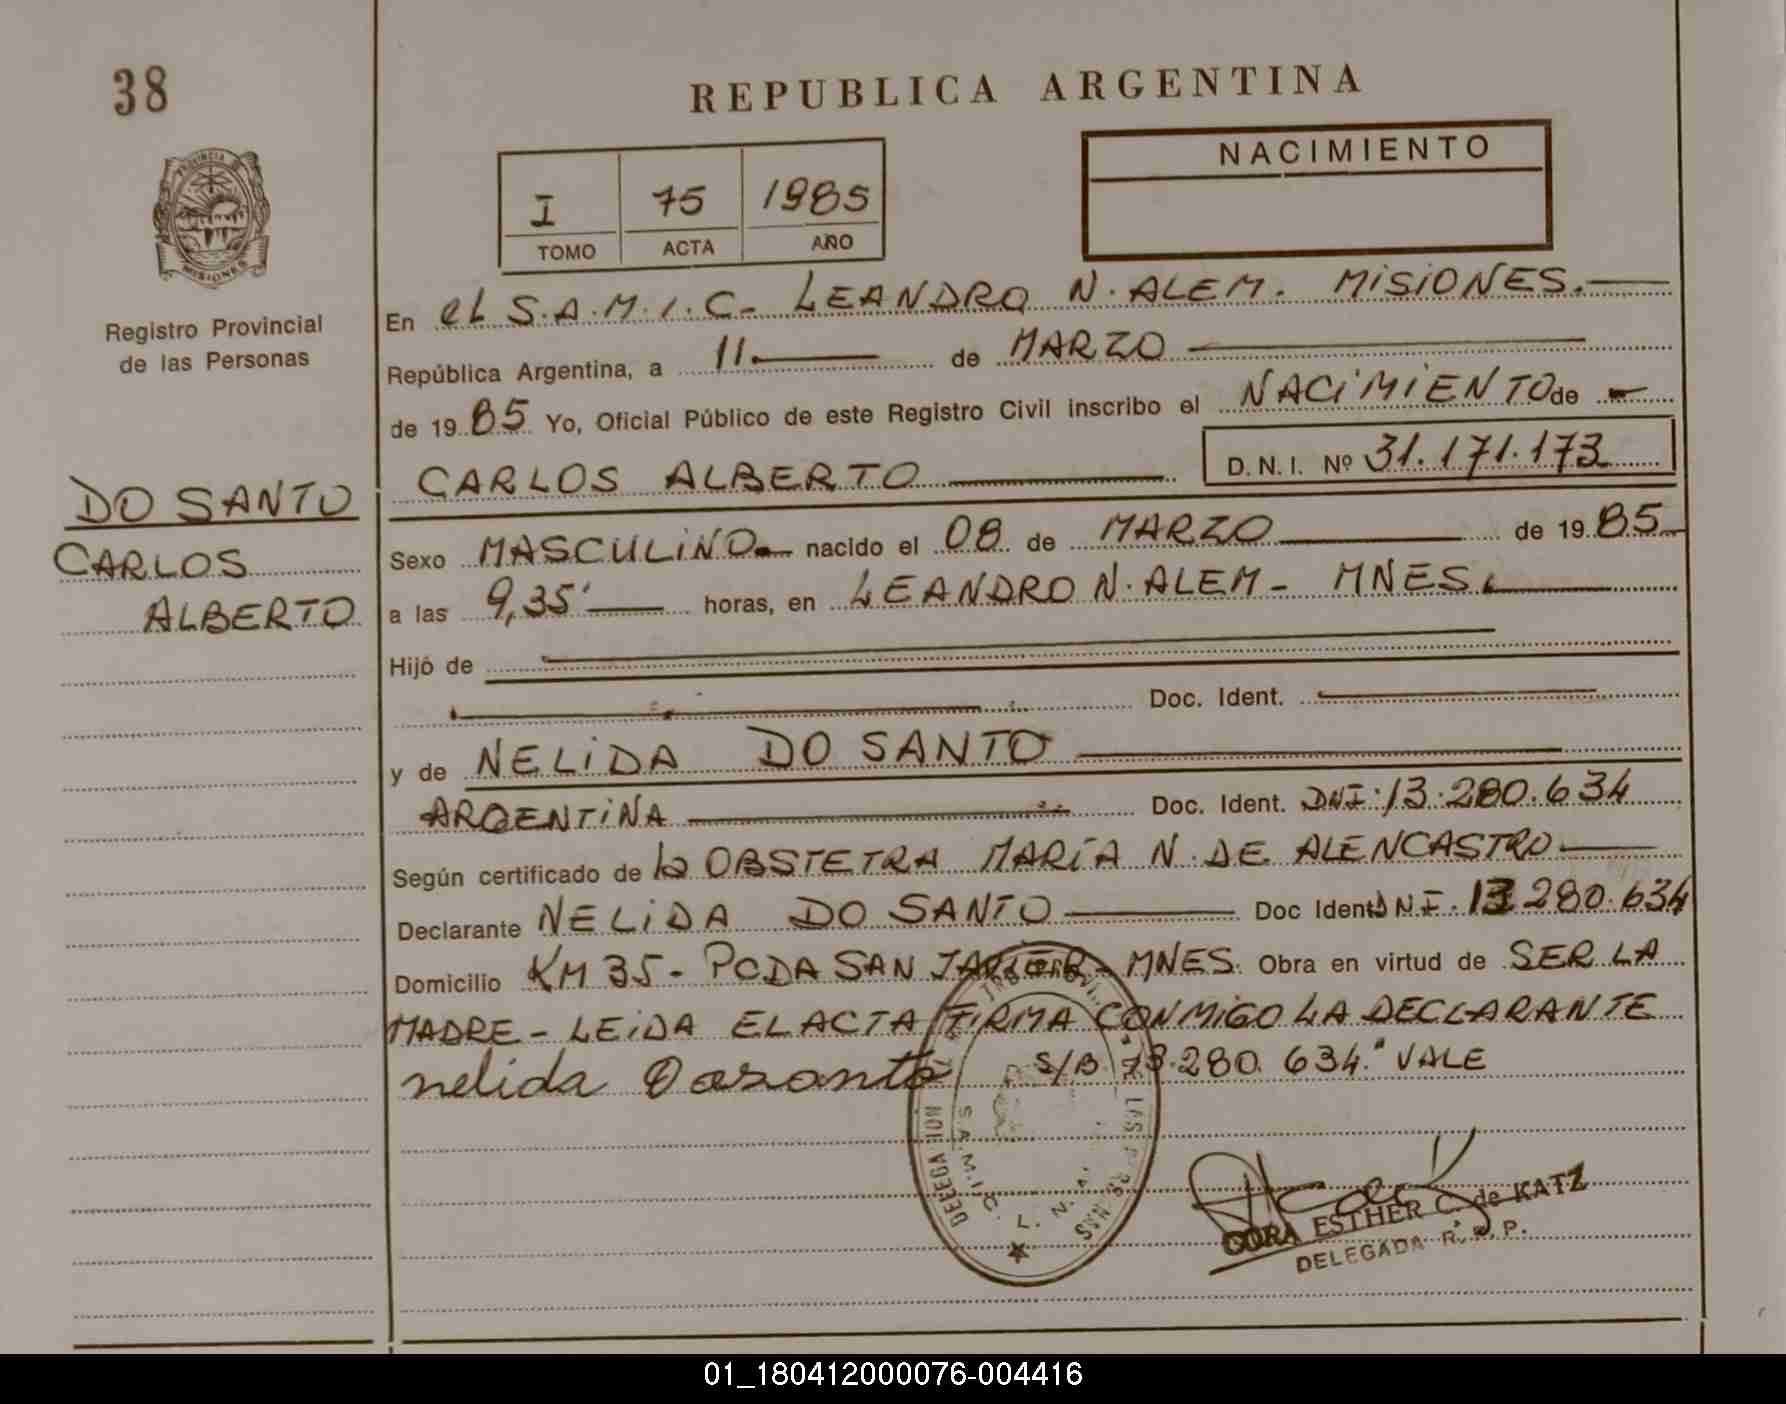 38
REPUBLICA ARGENTINA
PROVINCIA DE
MISIONES
Registro Provincial
de las Personas
I 75 1985
TOMO ACTA AÑO
NACIMIENTO
En el S.A.M.I.C. LEANDRO N. ALEM. MISIONES.
República Argentina, a 11 de MARZO
de 1985 Yo, Oficial Público de este Registro Civil inscribo el NACIMIENTO de
CARLOS ALBERTO D.N.I. Nº 31.171.173
DO SANTO
CARLOS
ALBERTO
Sexo MASCULINO nacido el 08 de MARZO de 1985
a las 9,35' horas, en LEANDRO N. ALEM - MNES.
Hijo de
Doc. Ident.
y de NELIDA DO SANTO
ARGENTINA Doc. Ident. DNI. 13.280.634
Según certificado de la OBSTETRA MARÍA N. DE ALENCASTRO
Declarante NELIDA DO SANTO Doc Ident DNI. 13 280.634
Domicilio KM 35 - PCDA SAN JAVIER - MNES. Obra en virtud de SER LA
MADRE - LEIDA EL ACTA FIRMA CONMIGO LA DECLARANTE
nelida Dosanto S/B 13.280.634." VALE
DELEGACION
S.A.M.I.C. L.N.A.
CORA ESTHER C. de KATZ
DELEGADA R. P. P.
01_180412000076-004416